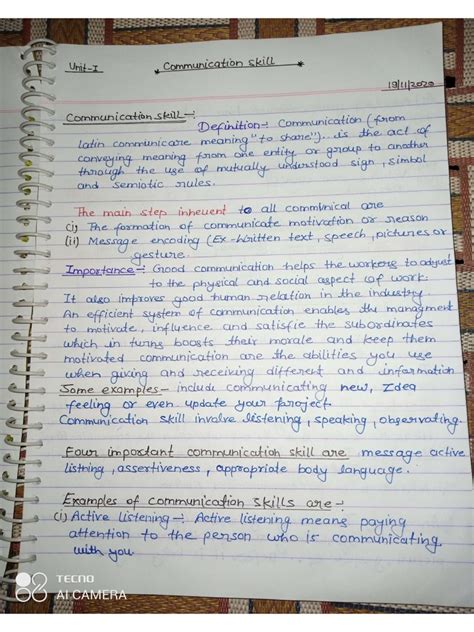 Unit-I
* Communication skill *
19/11/2020
Communication skill -:
Definition -: Communication (from
latin communicare meaning "to share").. is the act of
conveying meaning from one entity or group to another
through the use of mutually understood sign, simbol
and semiotic rules.
The main step inheuent to all commvnical are
(i) The formation of communicate motivation or reason
(ii) Message encoding (Ex-Written text, speech, pictures or
gesture.
Importance -: Good communication helps the workers to adjust
to the physical and social aspect of work.
It also improves good human relation in the industry
An efficient system of communication enables the managment
to motivate, influence and satisfie the subordinates
which in turns boosts their morale and keep them
motivated communication are the abilities you use
when giving and receiving different and information
Some examples - include communicating new, Idea
feeling or even update your project.
Communication skill involve listening, speaking, observating.
Four important communication skill are message active
listning, assertiveness, appropriate body language.
Examples of communication skills are -:
(i) Active listening -: Active listening means paying
attention to the person who is communicating
with you.
TECNO
AI CAMERA